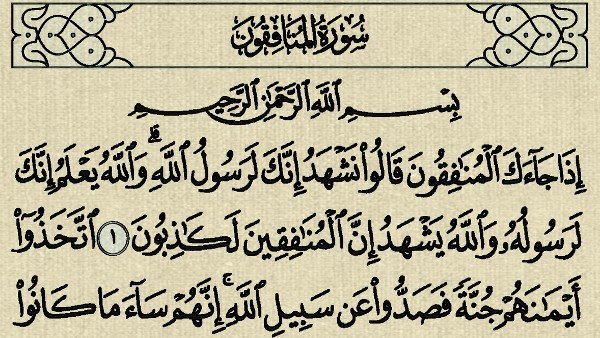 سُورَةُ المُنَافِقُونَ
بِسْمِ ٱللَّهِ ٱلرَّحْمَٰنِ ٱلرَّحِيمِ
إِذَا جَآءَكَ ٱلْمُنَٰفِقُونَ قَالُوا۟ نَشْهَدُ إِنَّكَ لَرَسُولُ ٱللَّهِ ۗ وَٱللَّهُ يَعْلَمُ إِنَّكَ
لَرَسُولُهُۥ وَٱللَّهُ يَشْهَدُ إِنَّ ٱلْمُنَٰفِقِينَ لَكَٰذِبُونَ ١ ٱتَّخَذُوٓا۟
أَيْمَٰنَهُمْ جُنَّةً فَصَدُّوا۟ عَن سَبِيلِ ٱللَّهِ ۚ إِنَّهُمْ سَآءَ مَا كَانُوا۟